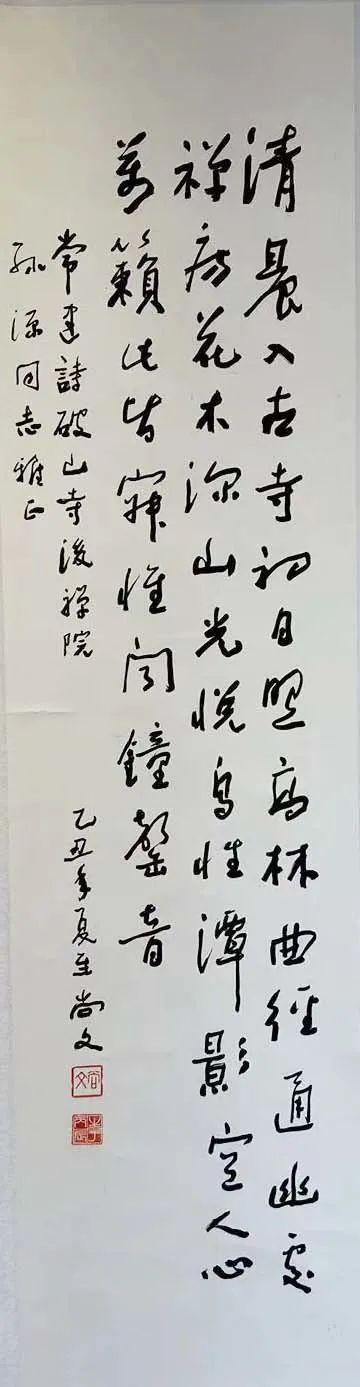 清晨入古寺初日照高林曲径通幽處
禅房花木深山光悦鸟性潭影空人心
萬籟此皆寂惟闻鐘磬音
常建詩破山寺後禅院
乙丑年夏至尚文
孙源同志雅正
尚文